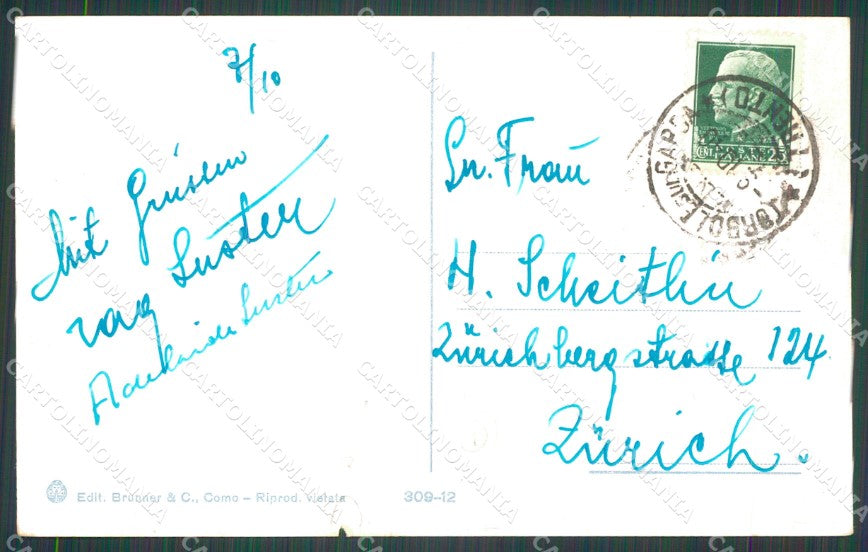 7/10
Mit Grüssen
Luster
Adelaide Luster
Frau
H. Scheitlin
Zürichbergstrasse 124
Zürich.
CENT. 25
TORBOLE SUL GARDA
(TRENTO)
Edit. Brunner & C., Como – Riprod. vietata
309-12
CARTOLINOMANIA